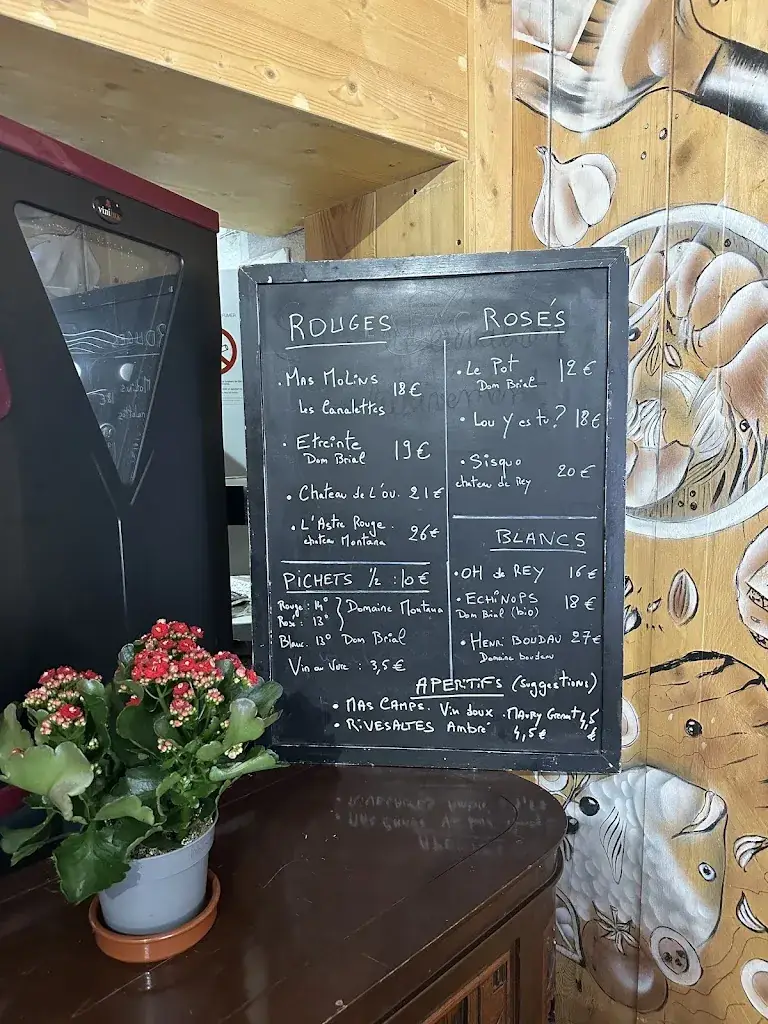 ROUGES
• Mas Molins
Les Canalettes 18€
• Etreinte
Dom Brial 19€
• Chateau de L'ou. 21€
• L'Astre Rouge.
chateau Montana 26€
PICHETS 1/2 : 10€
Rouge : 14°
Rosé : 13° } Domaine Montana
Blanc. 12° Dom Brial
Vin au Verre : 3,5€
ROSÉS
• Le Pot
Dom Brial 12€
• Lou y es tu ? 18€
• Sisquo
chateau de Rey 20€
BLANCS
• OH de REY 16€
• ECHINOPS
Dom Brial (bio) 18€
• Henri BOUDAU 27€
Domaine boudau
APERITIFS (suggestions)
• MAS CAMPS. Vin doux. MAURY Grenat 4,5 €
• RIVESALTES Ambré 4,5€